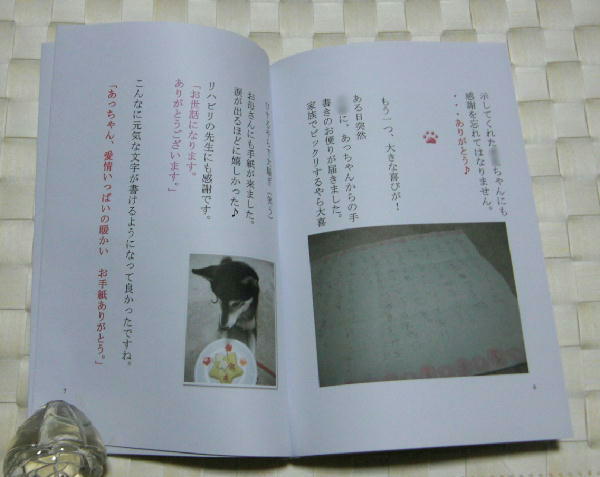 示してくれた ちゃんにも
感謝を忘れてはなりません。
・・・ありがとう♪
もう一つ、大きな喜びが！
ある日突然
に、あっちゃんからの手
書きのお便りが届きました。
家族でビックリするやら大喜
6
お母さんにも手紙が来ました。
涙が出るほどに嬉しかった♪
リハビリの先生にも感謝です。
「お世話になります。
ありがとうございます。」
こんなに元気な文字が書けるようになって良かったですね。
「あっちゃん、愛情いっぱいの暖かい お手紙ありがとう。」
7